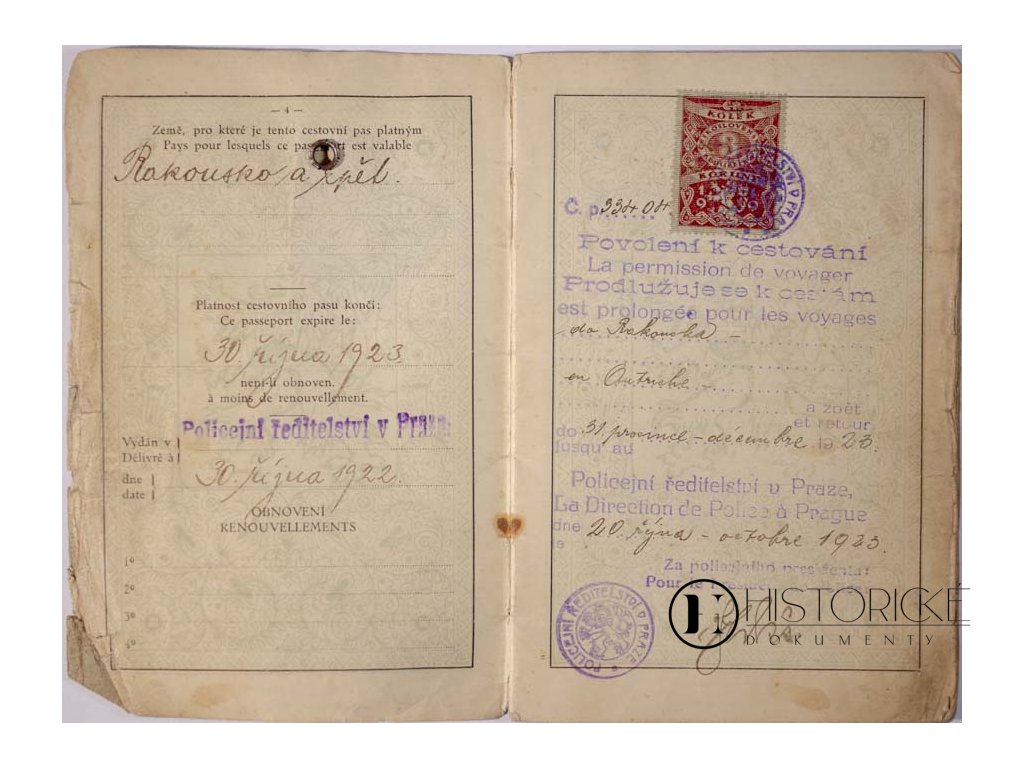 — 4 —
Země, pro které je tento cestovní pas platným
Pays pour lesquels ce passeport est valable
Rakousko a zpět.
Platnost cestovního pasu končí:
Ce passeport expire le:
30. října 1923
není-li obnoven.
à moins de renouvellement.
Policejní ředitelství v Praze
Vydán v
Délivré à
dne
date
30. října 1922.
OBNOVENÍ
RENOUVELLEMENTS
1º
2º
3º
4º
KOLEK
3
KORUNY
1919
Č. p. 33404
Povolení k cestování
La permission de voyager
Prodlužuje se k cestám
est prolongée pour les voyages
do Rakouska –
en Autriche –
a zpět
et retour
do 31. prosince – décembre 1923.
jusqu'au
Policejní ředitelství v Praze,
La Direction de Police à Prague
dne 20. října – octobre 1923.
e
Za policejního presidenta:
Pour le
POLICEJNÍ ŘEDITELSTVÍ V PRAZE
HISTORICKÉ
DOKUMENTY